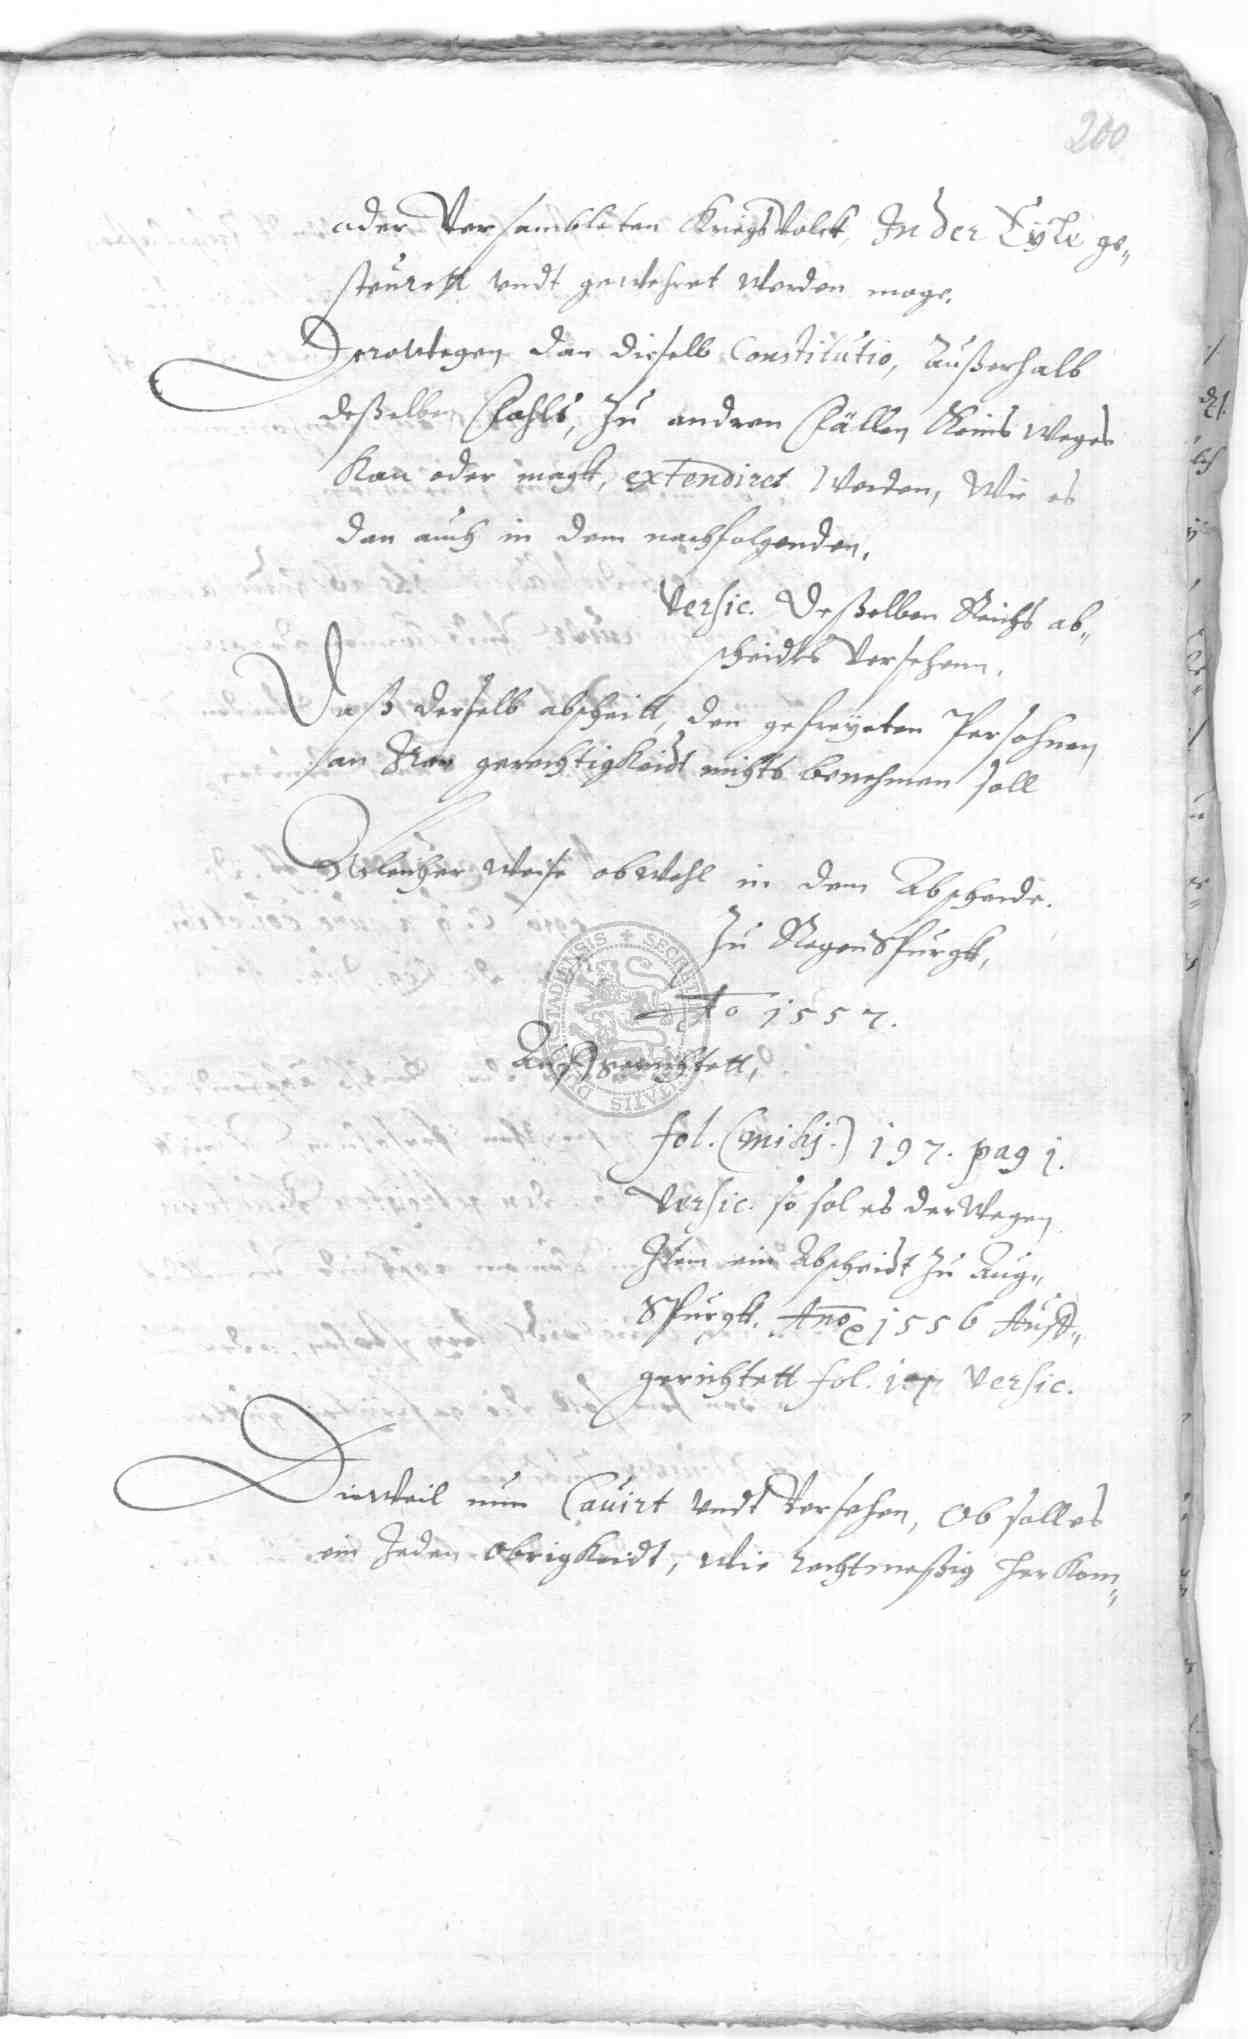 200
oder Versambleten Kriegs Volck, In der Eyle ge„
steuret vndt gewehret werden moge.
Derowegen dan dieselb Constitutio, außerhalb
deßelben Fahls, Zu andren Fällen Keins weges
Kan oder magk, extendiret werden, Wie es
dan auch in dem nachfolgenden,
Versic. Deßelben Reichs ab„
scheides Versehenn.
Daß derselb abscheitt, den gefreyeten Persohnen
an Irer gerechtigkeidt nichts benehmen soll
Gleicher weise obwohl in dem Abscheide.
Zu Regenspurgk,
Ao 1557.
Auffgerichtett,
fol. (mihj.) 197. pag 1.
Versic. so sol es derwegen
Item ein Abscheidt Zu Aug„
Spurgk. Anno 1556 Auff„
gerichtett fol. Versic.
Dieweil nun Cauirt vndt Versehen, Ob soll es
ein Jeden Obrigkeidt, wie rechtmeßig herkom„
SECRETUM CIVITATIS DUDERSTADIENSIS